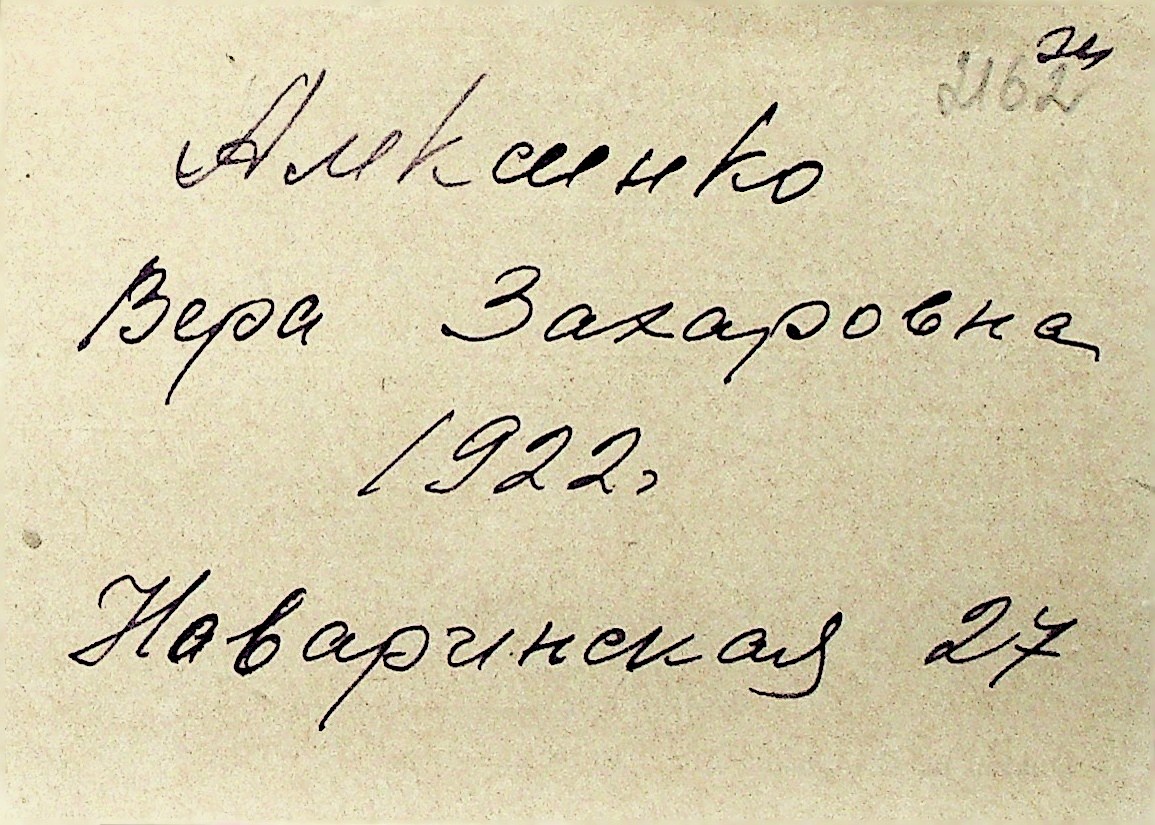 2162
Алексеенко
Вера Захаровна
1922г
Наваринская 27